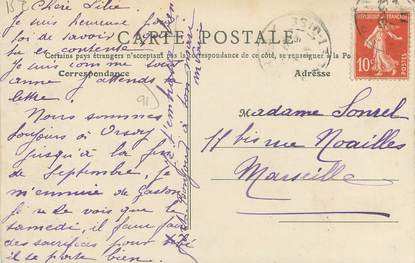 Chère Lilie
Je suis heureuse pour
toi de savoir que
tu es contente
Je suis comme sœur
anne j'attends ta
lettre.
Nous sommes
toujours à Orsay
jusqu'à la fin
de Septembre, je
m'ennuie de Gaston
je ne le vois que le
samedi, il faut faire
des sacrifices pour bébé
il se porte bien.
CARTE POSTALE
Certains pays étrangers n'acceptant pas la correspondance de ce côté, se renseigner à la Po
Correspondance
Adresse
RÉPUBLIQUE FRANÇAISE
10
POSTES
Madame Sonrel
11 bis rue Noailles
Marseille
91